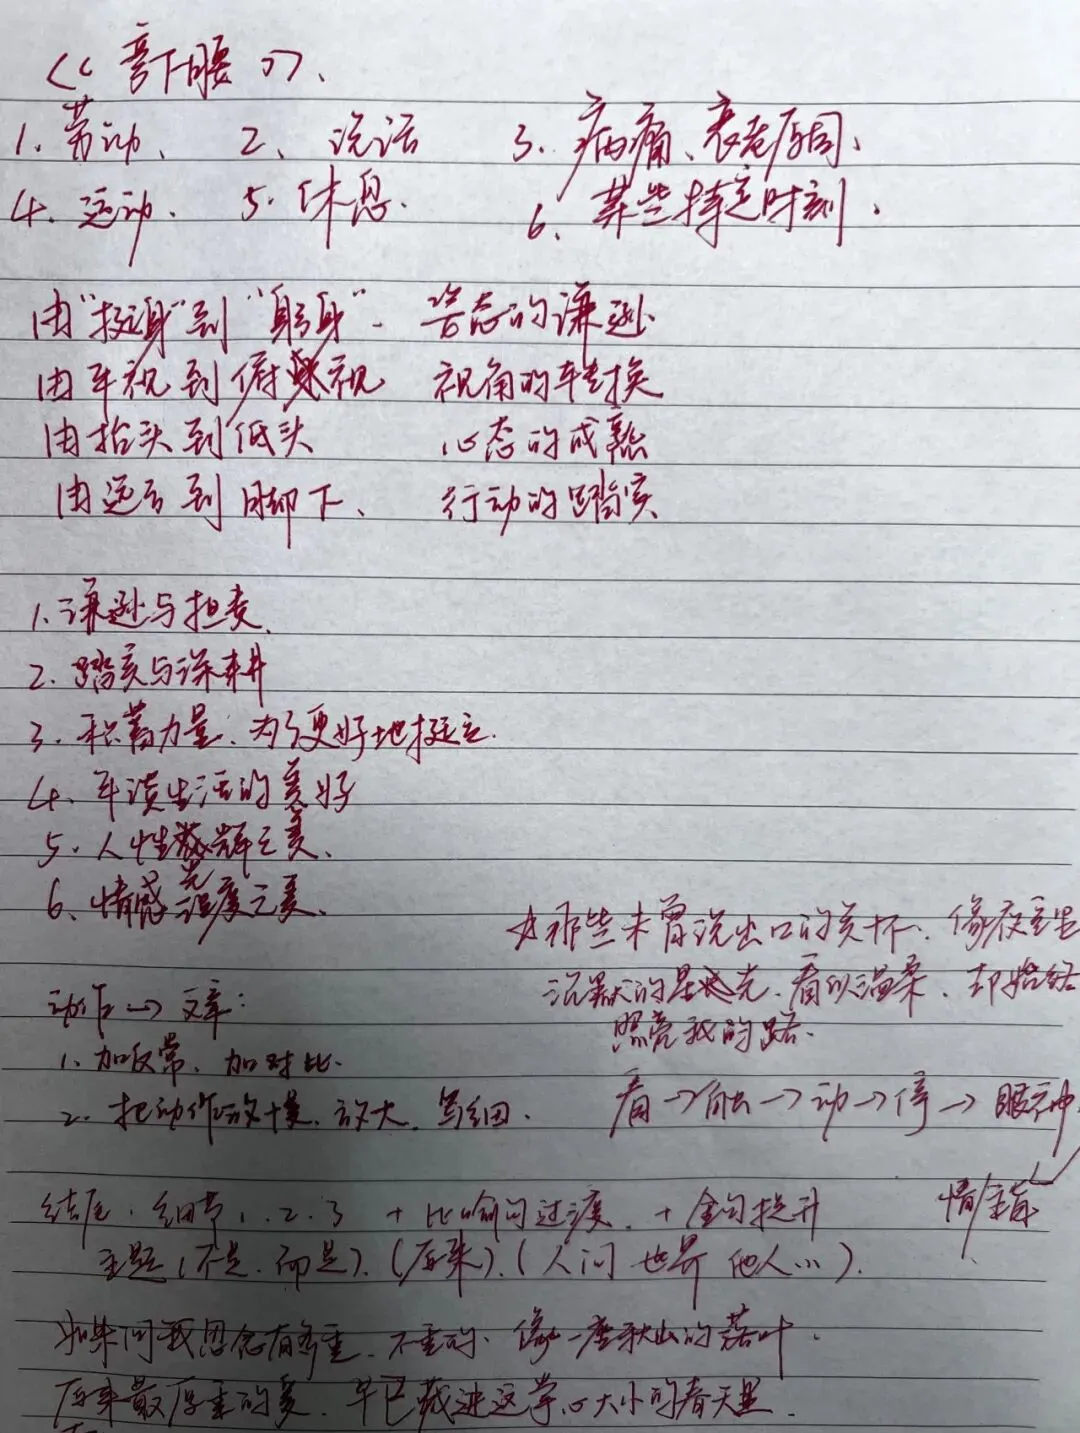 《弯下腰》、
1. 劳动、 2、说话 3. 病痛、衰老原因、
4. 运动. 5. 休息. 6、某些特定时刻.
由“挺身”到“躬身”. 姿态的谦逊.
由平视到俯视 视角的转换
由抬头到低头 心态的成熟
由远方到脚下、 行动的踏实
1. 谦逊与担责.
2. 踏实与深耕
3. 积蓄力量、为了更好地挺立.
4. 年读生活的美好
5. 人性光辉之美.
6、情感温度之美.
☆那些未曾说出口的关怀、像夜空里
沉默的星光、看似温柔、却始终
照亮我的路.
动作→文章:
1. 加反常、加对比.
2. 把动作放慢、放大、写细.
看→触→动→停→眼神
情/主旨
结尾:细节1.2.3 + 比喻句过渡. + 金句提升
主题(不是.而是).(原来).(人间 世界 他人…).
如果问我思念有多重、不重的、像一座秋山的落叶.
原来最厚重的爱、早已藏进这掌心大小的春天里.